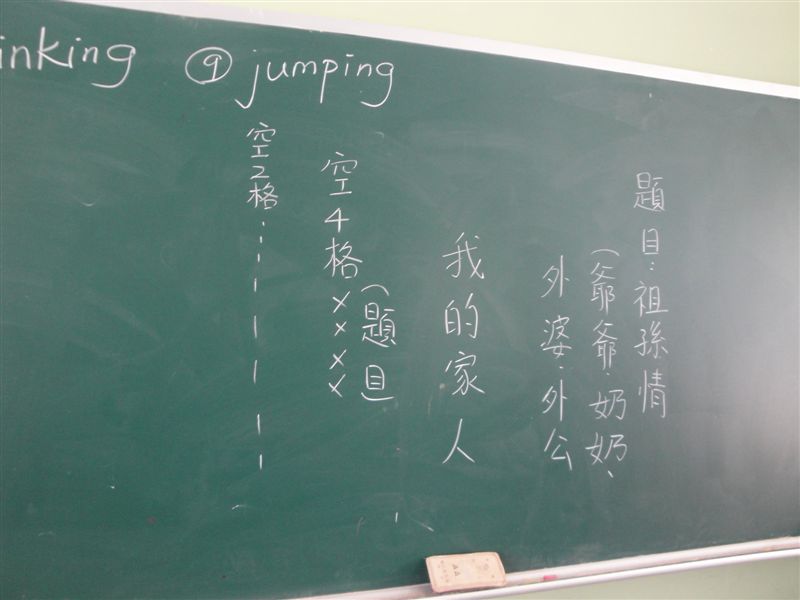 inking ⑨ jumping
題目:祖孫情
(爺爺、奶奶、
外婆、外公
我的家人
(題目)
空4格××××
空2格